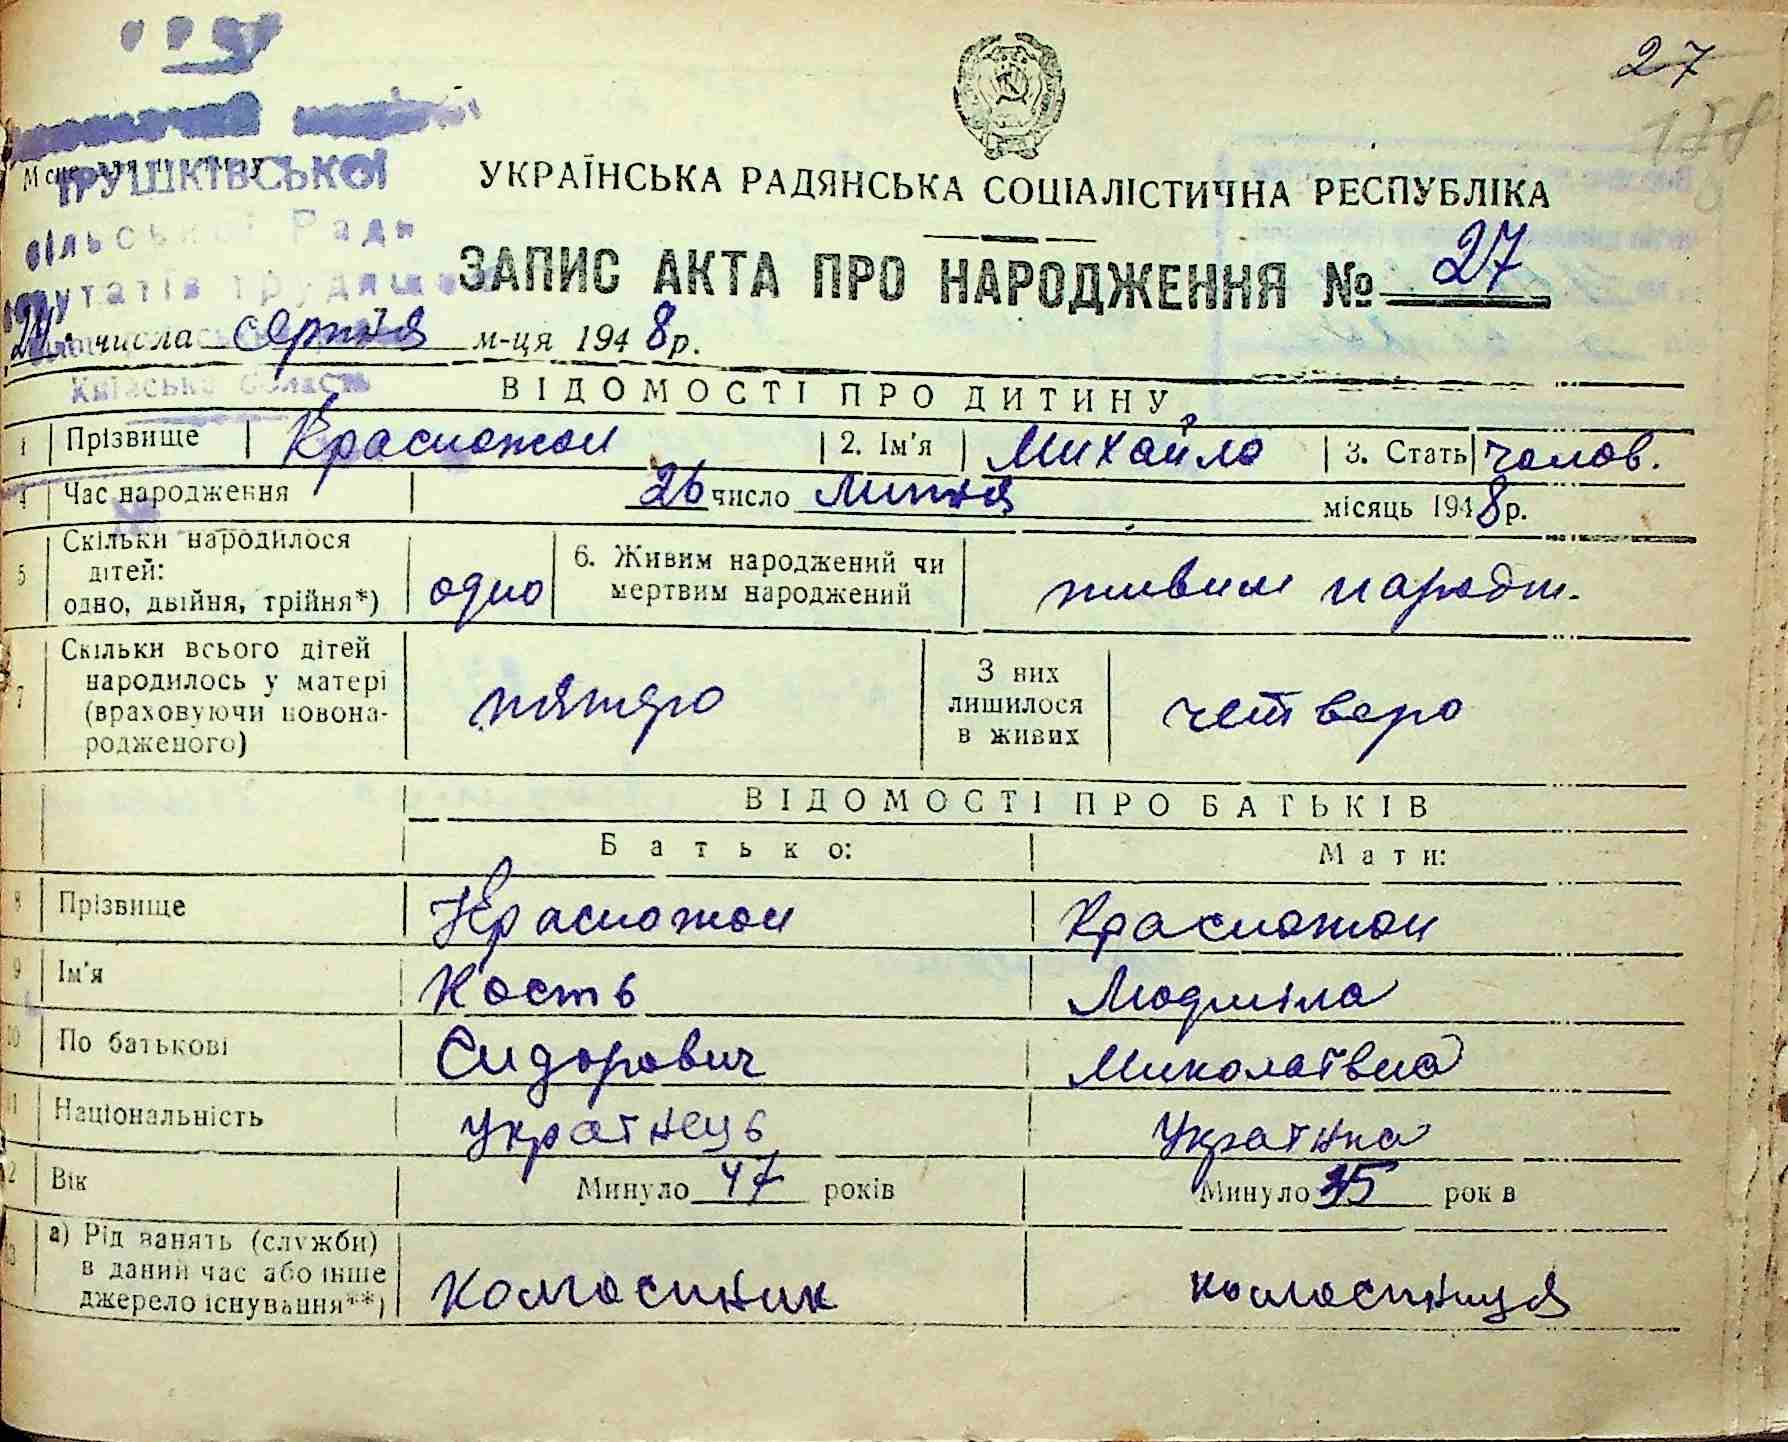 27
178
Місце для штампу
ТРУШКІВСЬКОЇ
сільської Ради
депутатів трудящих
Київська область
УКРАЇНСЬКА РАДЯНСЬКА СОЦІАЛІСТИЧНА РЕСПУБЛІКА
ЗАПИС АКТА ПРО НАРОДЖЕННЯ № 27
числа серпня м-ця 1948 р.
ВІДОМОСТІ ПРО ДИТИНУ
1 Прізвище Красножон 2. Ім'я Михайло 3. Стать чолов.
4 Час народження 26 число Липня місяць 1948 р.
5 Скільки народилося дітей: одно, двійня, трійня*) одно 6. Живим народжений чи мертвим народжений живим народж.
7 Скільки всього дітей народилось у матері (враховуючи новонародженого) пятеро З них лишилося в живих четверо
ВІДОМОСТІ ПРО БАТЬКІВ
Батько: Мати:
8 Прізвище Красножон Красножон
9 Ім'я Кость Людміла
10 По батькові Сидорович Миколаївна
11 Національність Українець Українка
12 Вік Минуло 47 років Минуло 35 рок в
а) Рід занять (служби) в даний час або інше джерело існування**) Колгоспник колгоспниця